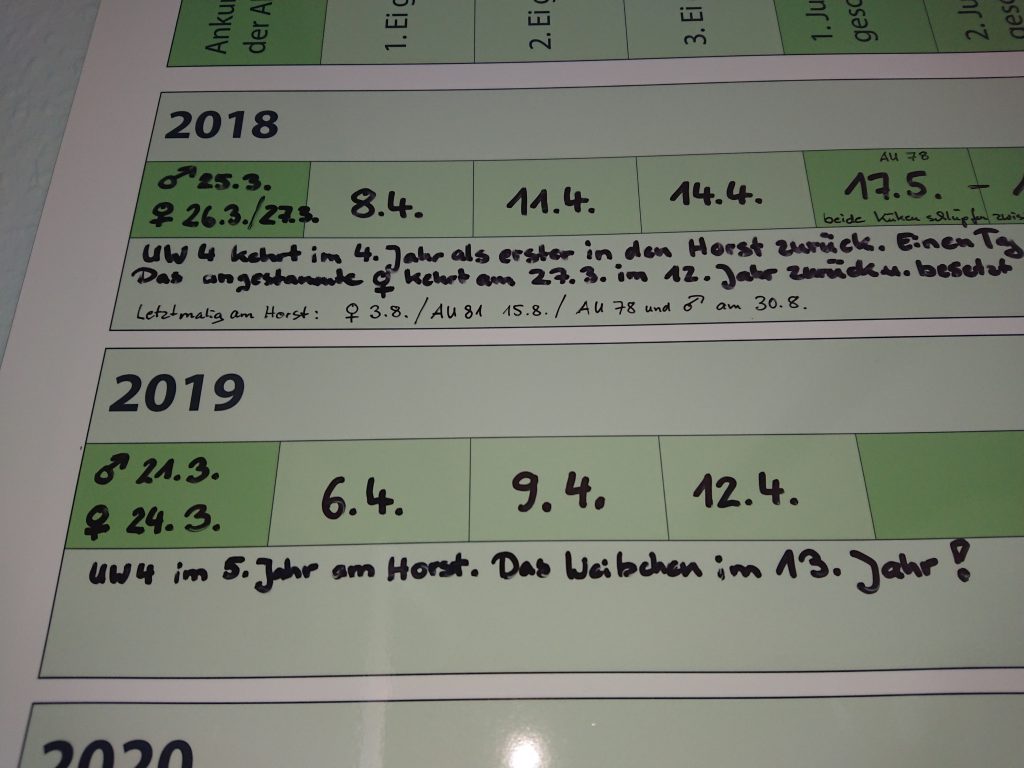 der
1. Ei
2. Ei
3. Ei
1.
2.
2018
♂ 25.3.
♀ 26.3./27.3.
8.4.
11.4.
14.4.
AU 78
17.5. -
beide Küken schlüpfen
UW 4 kehrt im 4. Jahr als erster in den Horst zurück. Einen Tag
Das angestammte ♀ kehrt am 27.3. im 12. Jahr zurück u. besetzt
Letztmalig am Horst: ♀ 3.8. / AU 81 15.8. / AU 78 und ♂ am 30.8.
2019
♂ 21.3.
♀ 24.3.
6.4.
9.4.
12.4.
UW4 im 5. Jahr am Horst. Das Weibchen im 13. Jahr!
2020